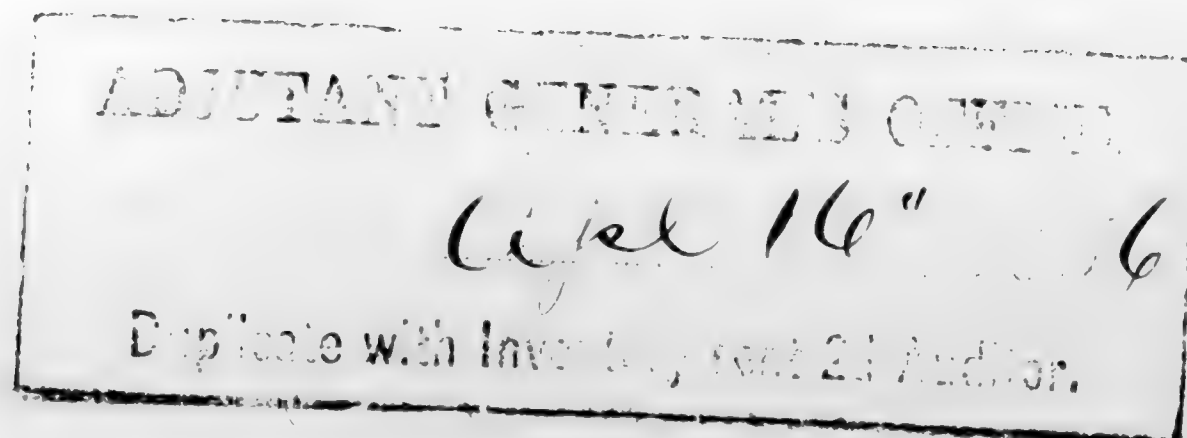 ADJUTANT GENERAL'S OFFICE,
April 16" 6
Duplicate with Inventory, sent 2d Auditor.